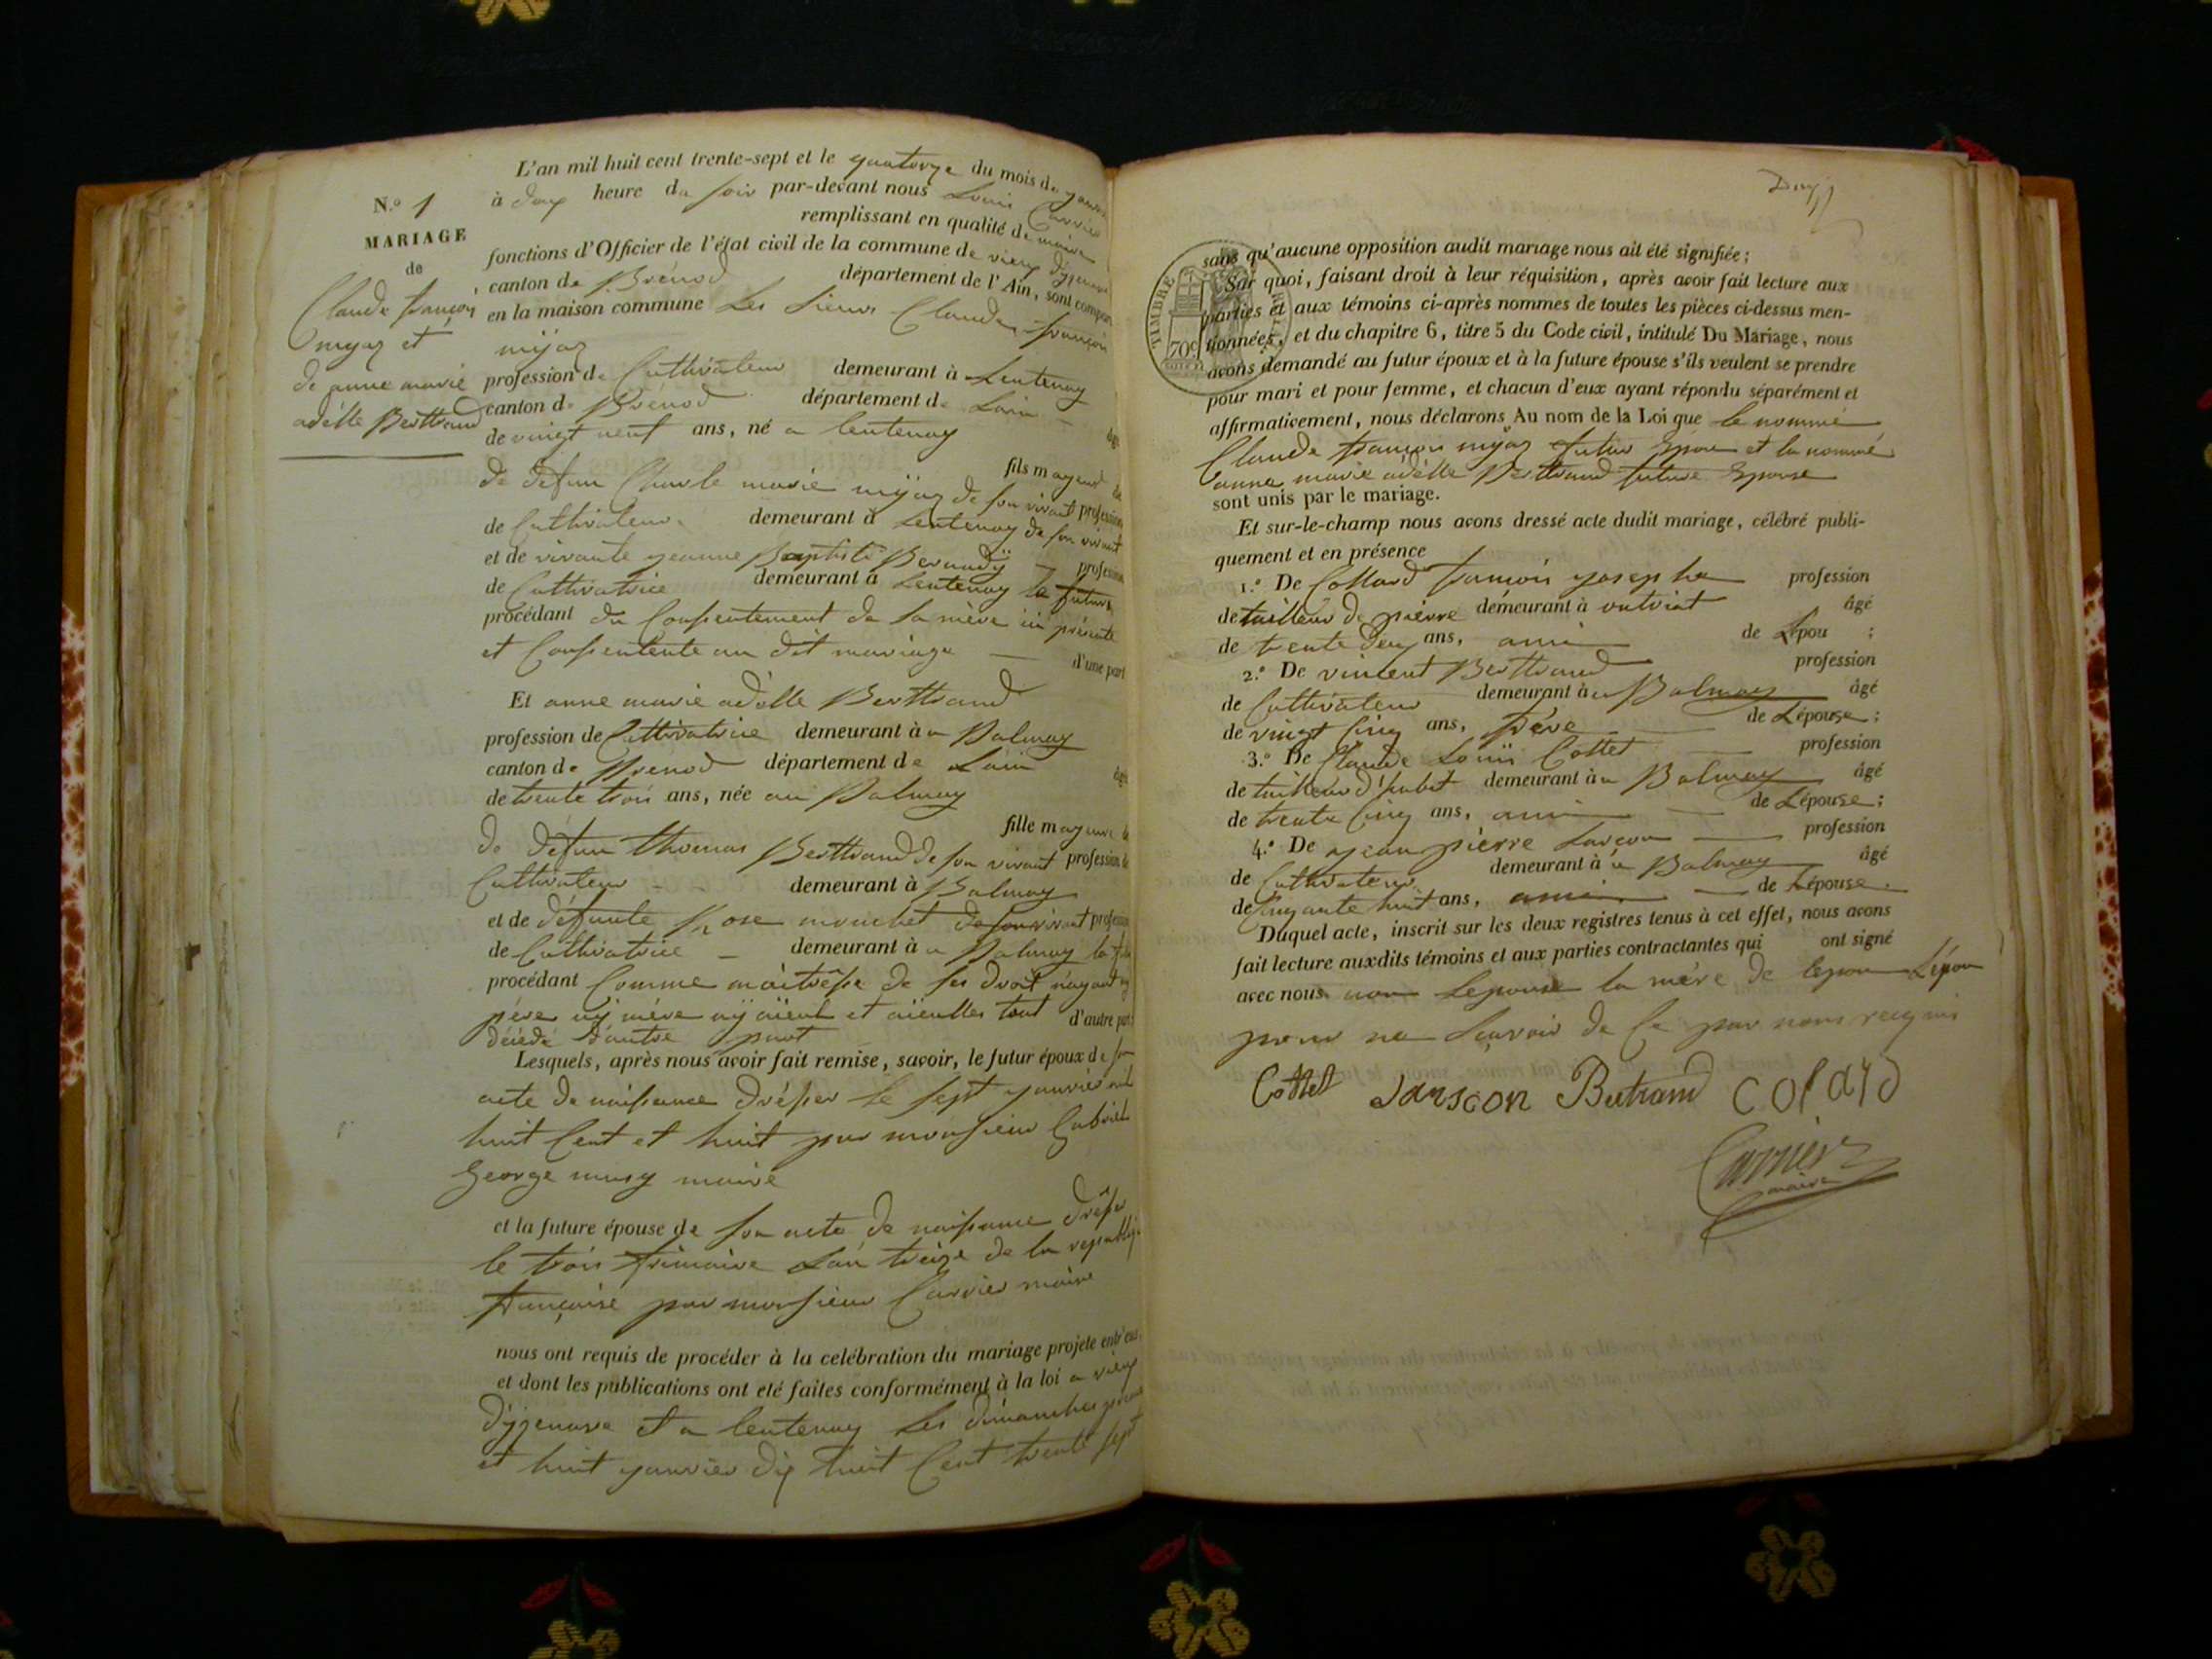 N.º 1
MARIAGE
de
Claude françois
myaz et
de anne marie
adélle Berttrand
L'an mil huit cent trente-sept et le quatorze du mois de janvier
à deux heure du soir par-devant nous Louis Carrier
remplissant en qualité de maire
fonctions d'Officier de l'état civil de la commune de vieux d'yzenave
canton de Brénod département de l'Ain, sont comparu
en la maison commune Les Sieurs Claude françois
mÿaz
profession de Cultivateur demeurant à Lentenay
canton de Brénod département de Lain
de vingt neuf ans, né a lentenay
fils mageur de
de défun Charle marie mÿaz de son vivant profession
de Cultivateur demeurant à Lentenay de son vivant
et de vivante jeanne Baptiste Bernady profession
de Cultivatrice demeurant à Lentenay le futur
procédant du Consentement de sa mère ici présente
et Consentente au dit mariage d'une part
Et anne marie adélle Berttrand
profession de Cultivatrice demeurant à a Balmay
canton de Brenod département de Lain
de trente trois ans, née au Balmay
fille mageure de
de défun thomas Berttrand de son vivant profession de
Cultivateur demeurant à Balmay
et de défunte Rose mouchet de son vivant profession
de Cultivatrice demeurant à a Balmay la
procédant Comme maitresse de ses droit n'ayant ny
père ny mère nÿ aïeul et aïeulles tout d'autre part
décédé d'autre part
Lesquels, après nous avoir fait remise, savoir, le futur époux de son
acte de naissance drésser le sept janvier mil
huit Cent et huit par monsieur Gabriel
George musy maire
et la future épouse de son acte de naissance drésser
le trois frimaire Lan treize de la republiq
française par monsieur Carrier maire
nous ont requis de procéder à la celébration du mariage projeté entr'eux
et dont les publications ont eté faites conformément à la loi a vieux
d'yzenave et a lentenay les dimanches premier
et huit janvier dix huit Cent trente sept
Deux
TIMBRE
70c
sans qu'aucune opposition audit mariage nous ait été signifiée;
Sur quoi, faisant droit à leur réquisition, après avoir fait lecture aux
parties et aux témoins ci-après nommes de toutes les pièces ci-dessus men-
tionnées, et du chapitre 6, titre 5 du Code civil, intitulé Du Mariage, nous
avons demandé au futur époux et à la future épouse s'ils veulent se prendre
pour mari et pour femme, et chacun d'eux ayant répondu séparément et
affirmativement, nous déclarons Au nom de la Loi que le nommé
Claude françois mÿaz futur Epou et la nommé
anne marie adélle Berttrand future Epouse
sont unis par le mariage.
Et sur-le-champ nous avons dressé acte dudit mariage, célébré publi-
quement et en présence
1.º De Collard françois josephe profession
de tailleur de pierre demeurant à outriat âgé
de trente deux ans, ami de Lépou ;
2.º De vincent Berttrand profession
de Cultivateur demeurant à a Balmay âgé
de vingt Cinq ans, frère de Lépouse ;
3.º De Claude Louis Cottet profession
de tailleur d'habit demeurant à a Balmay âgé
de trente Cinq ans, ami de Lépouse ;
4.º De jean pierre Larçon profession
de Cultivateur demeurant à a Balmay âgé
de Cinquante huit ans, ami de Lépouse.
Duquel acte, inscrit sur les deux registres tenus à cet effet, nous avons
fait lecture auxdits témoins et aux parties contractantes qui ont signé
avec nous non Lepouse la mère de lepou Lépou
pour ne Sçavoir de Ce par nous requis
Cottet Jarscon Butrand Colard
Carrier
maire